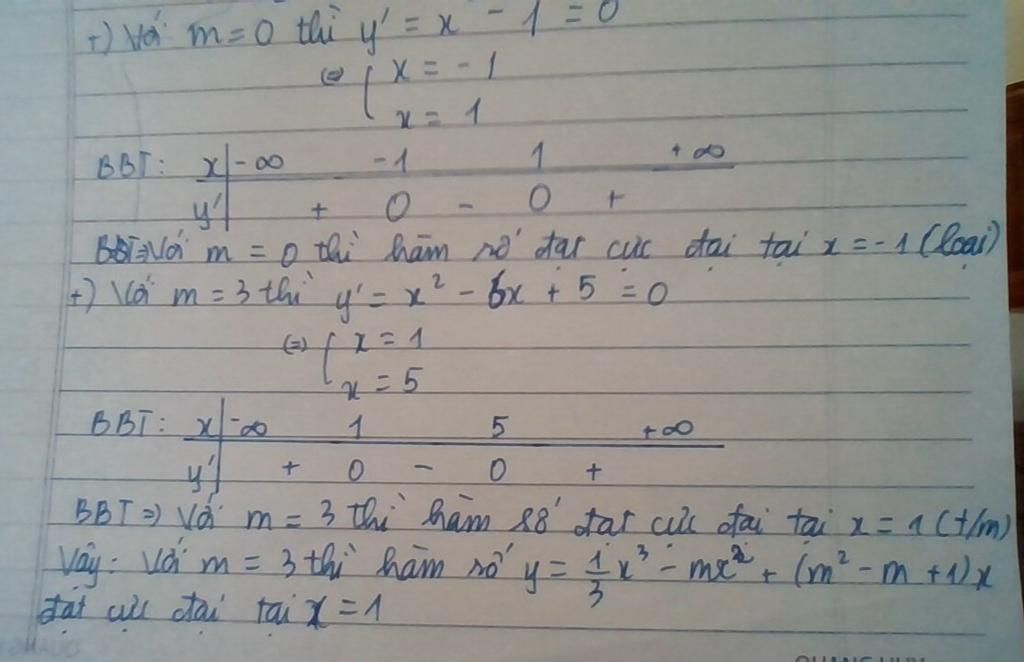 +) Với m = 0 thì y' = x - 1 = 0
(=) [ x = -1
x = 1
BBT: x | -∞ -1 1 +∞
y' | + 0 - 0 +
BBT=) Với m = 0 thì hàm số đạt cực đại tại x = -1 (loại)
+) Với m = 3 thì y' = x² - 6x + 5 = 0
(=) [ x = 1
x = 5
BBT: x | -∞ 1 5 +∞
y' | + 0 - 0 +
BBT =) Với m = 3 thì hàm số đạt cực đại tại x = 1 (t/m)
Vậy: Với m = 3 thì hàm số y = 1/3 x³ - mx² + (m² - m + 1)x
đạt cực đại tại x = 1